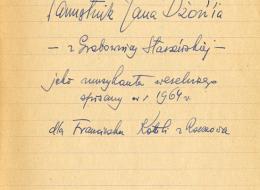 Pamiętnik Jana Dżonia
– z Grabownicy Starzeńskiej –
jako muzykanta weselnego
spisany w r 1964 r.
dla Franciszka Kotuli z Rzeszowa